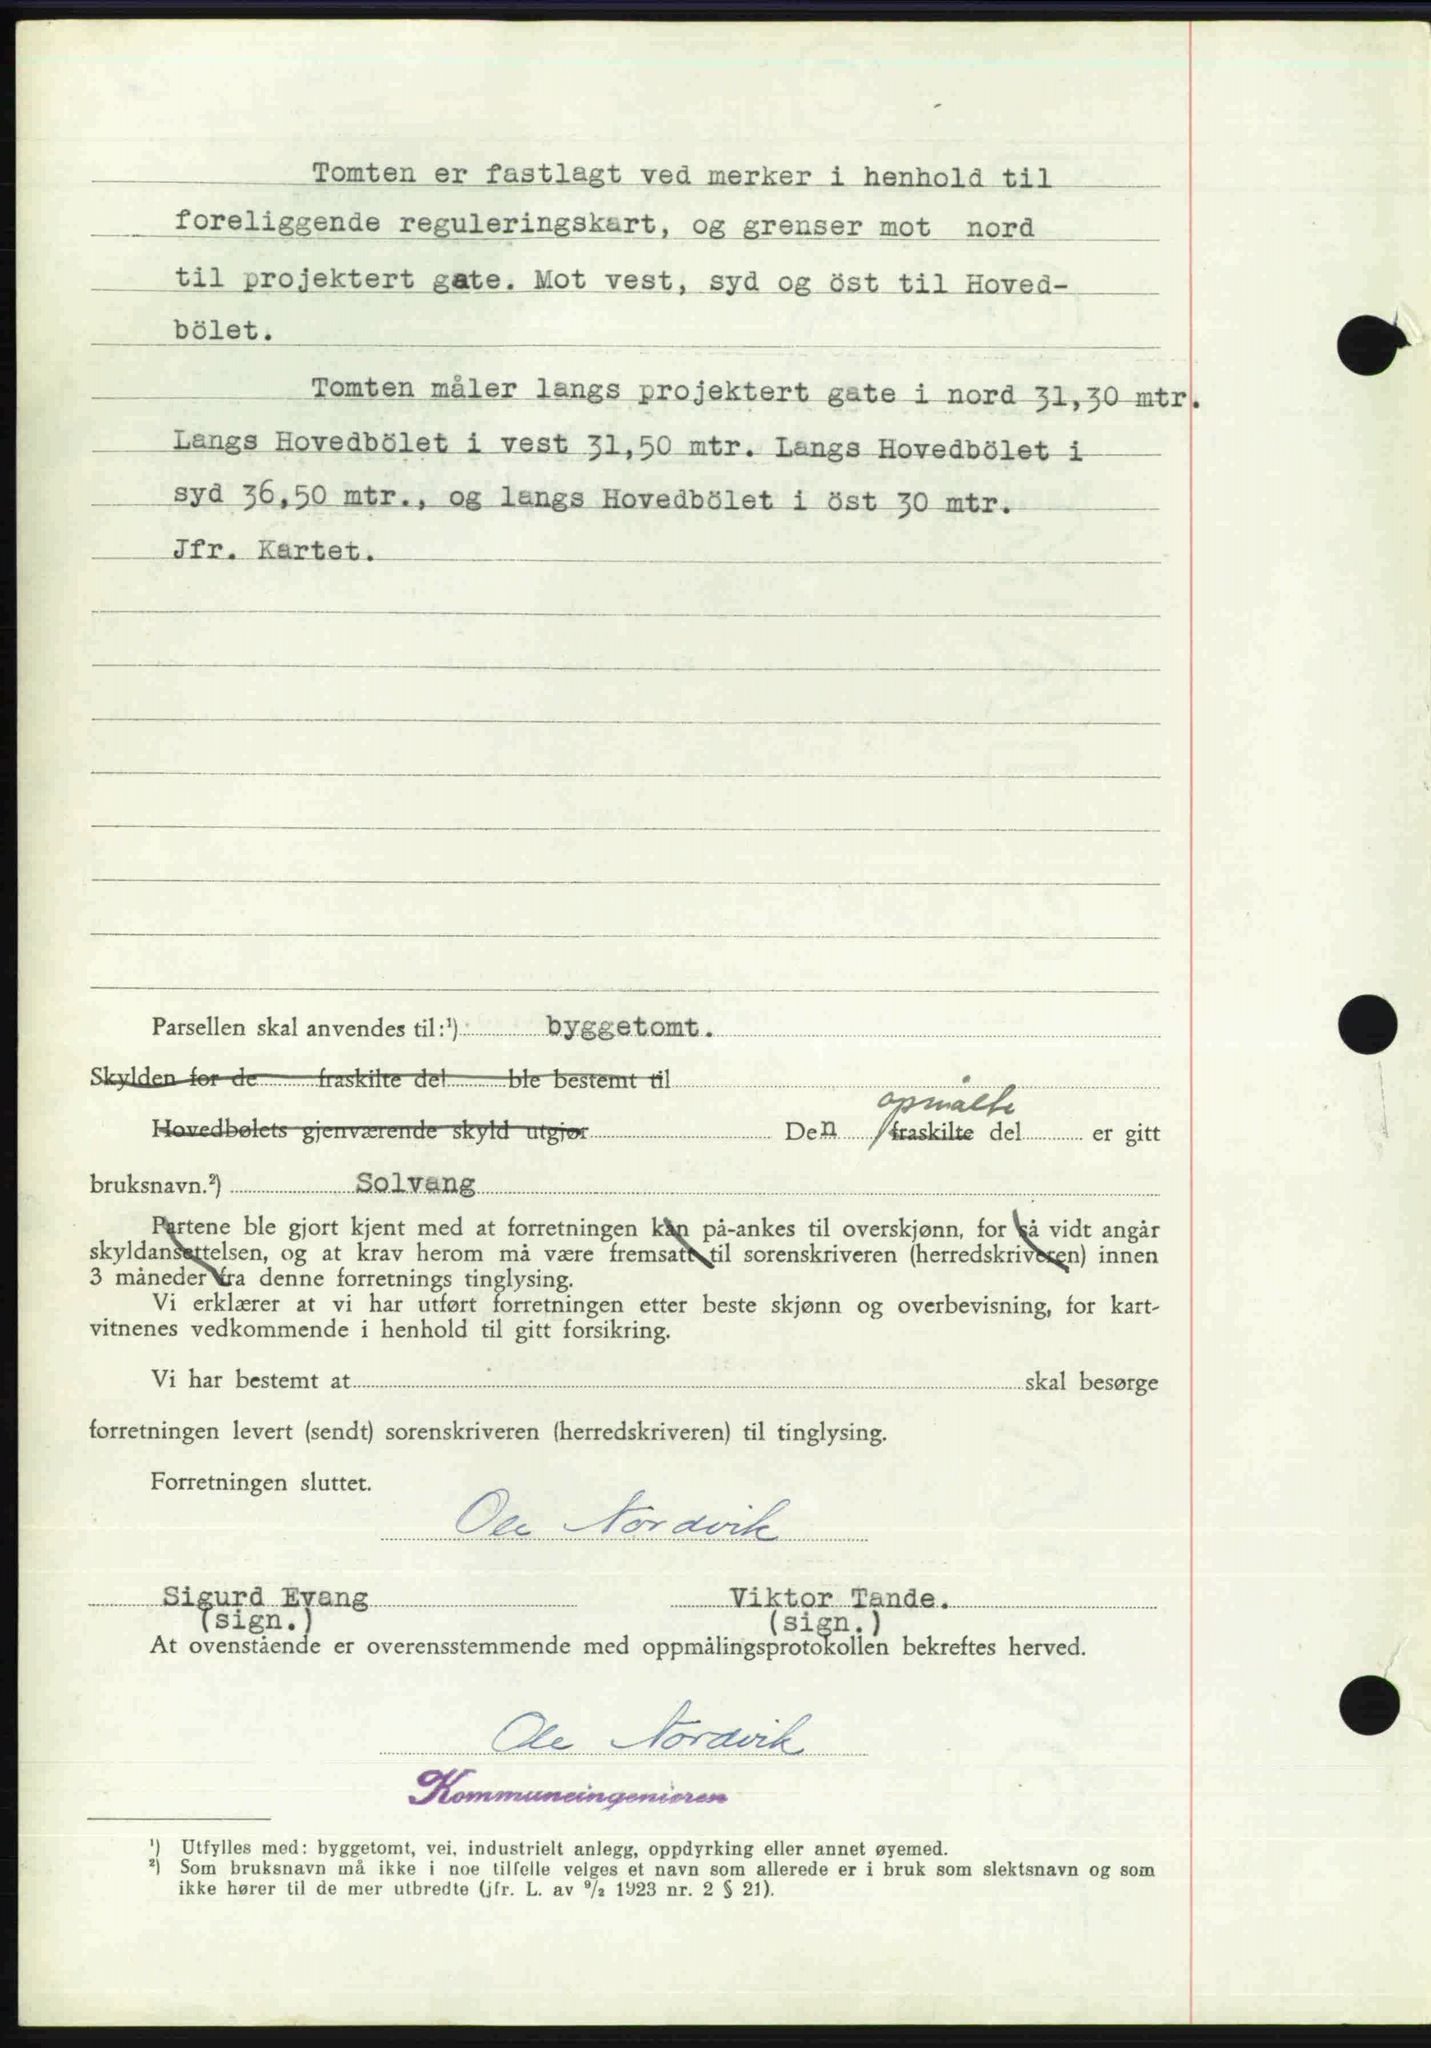 Tomten er fastlagt ved merker i henhold til
foreliggende reguleringskart, og grenser mot nord
til projektert gate. Mot vest, syd og öst til Hoved-
bölet.
Tomten måler langs projektert gate i nord 31,30 mtr.
Langs Hovedbölet i vest 31,50 mtr. Langs Hovedbölet i
syd 36,50 mtr., og langs Hovedbölet i öst 30 mtr.
Jfr. Kartet.
Parsellen skal anvendes til:¹) byggetomt.
Skylden for de fraskilte del ble bestemt til
opmålte
Hovedbølets gjenværende skyld utgjør Den fraskilte del er gitt
bruksnavn.²) Solvang
Partene ble gjort kjent med at forretningen kan på-ankes til overskjønn, for så vidt angår
skyldansettelsen, og at krav herom må være fremsatt til sorenskriveren (herredskriveren) innen
3 måneder fra denne forretnings tinglysing.
Vi erklærer at vi har utført forretningen etter beste skjønn og overbevisning, for kart-
vitnenes vedkommende i henhold til gitt forsikring.
Vi har bestemt at skal besørge
forretningen levert (sendt) sorenskriveren (herredskriveren) til tinglysing.
Forretningen sluttet.
Ole Nordvik
Sigurd Evang Viktor Tande.
(sign.) (sign.)
At ovenstående er overensstemmende med oppmålingsprotokollen bekreftes herved.
Ole Nordvik
Kommuneingeniøren
¹) Utfylles med: byggetomt, vei, industrielt anlegg, oppdyrking eller annet øyemed.
²) Som bruksnavn må ikke i noe tilfelle velges et navn som allerede er i bruk som slektsnavn og som
ikke hører til de mer utbredte (jfr. L. av ⁹/₂ 1923 nr. 2 § 21).